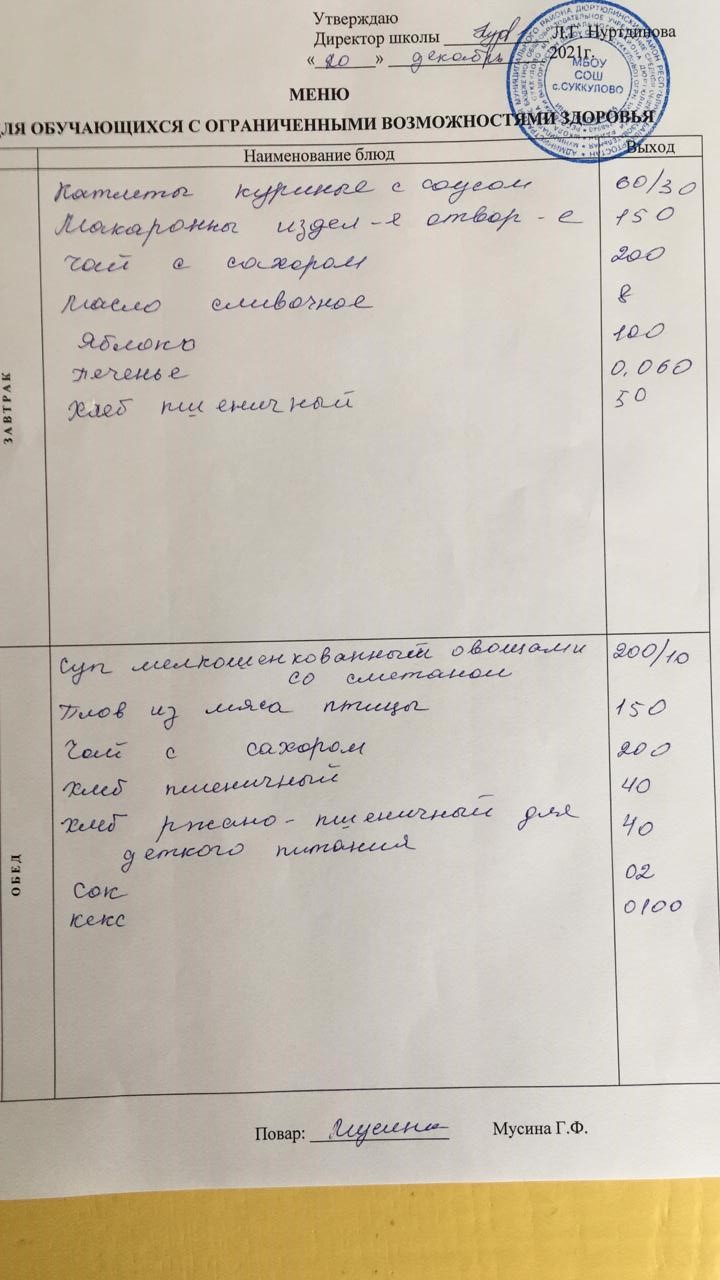 Утверждаю
Директор школы Л.Г. Нуртдинова
« 20 » декабрь 2021г.
МБОУ
СОШ
с.СУККУЛОВО
МЕНЮ
ДЛЯ ОБУЧАЮЩИХСЯ С ОГРАНИЧЕННЫМИ ВОЗМОЖНОСТЯМИ ЗДОРОВЬЯ
Наименование блюд Выход
ЗАВТРАК
Катлеты куриные с соусом 60/30
Макаронны издел-я отвор-е 150
Чай с сахором 200
Масло сливочное 8
Яблоко 100
печенье 0,060
хлеб пшеничный 50
ОБЕД
Суп мелкошенкованный овощами 200/10
со сметаной
Плов из мяса птицы 150
Чай с сахором 200
хлеб пшеничный 40
хлеб ржано-пшеничный для 40
деткого питания
Сок 02
кекс 0100
Повар: Мусина Мусина Г.Ф.